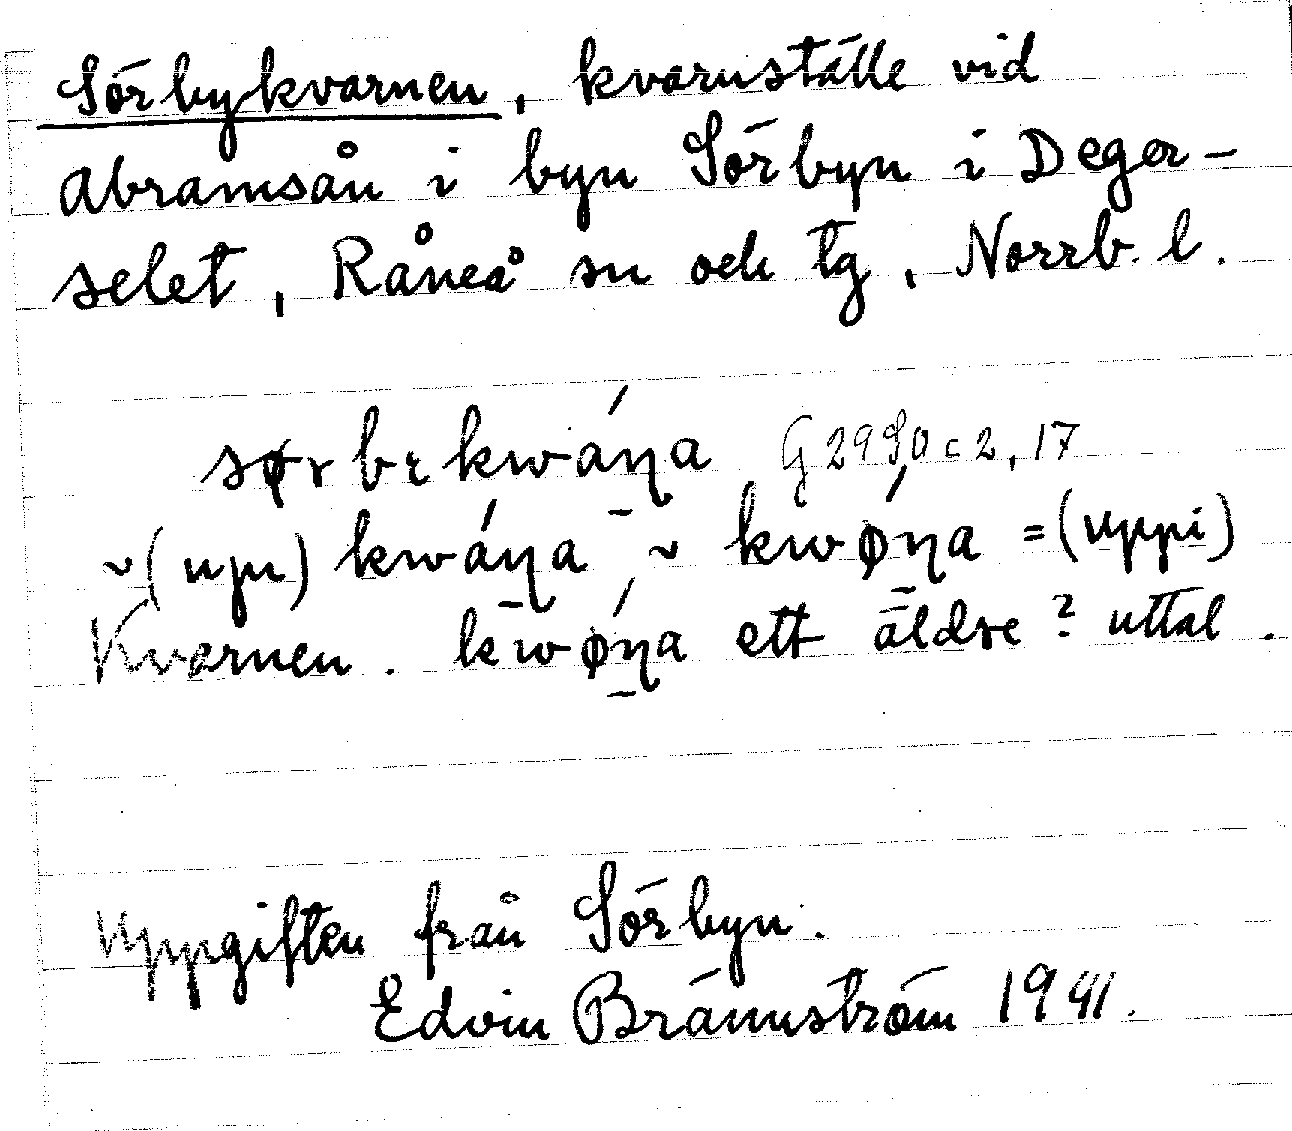 Sörbykvarnen, kvarnställe vid
Abramsån i byn Sörbyn i Deger-
selet, Råneå sn och tg, Norrb. l.
sørbɩkwáŋa G2990c2,17
~(upu) kwáŋa ~ kwǿŋa =(uppi)
Kvarnen. kwǿŋa ett äldre? uttal.
Uppgiften från Sörbyn.
Edvin Brännström 1941.